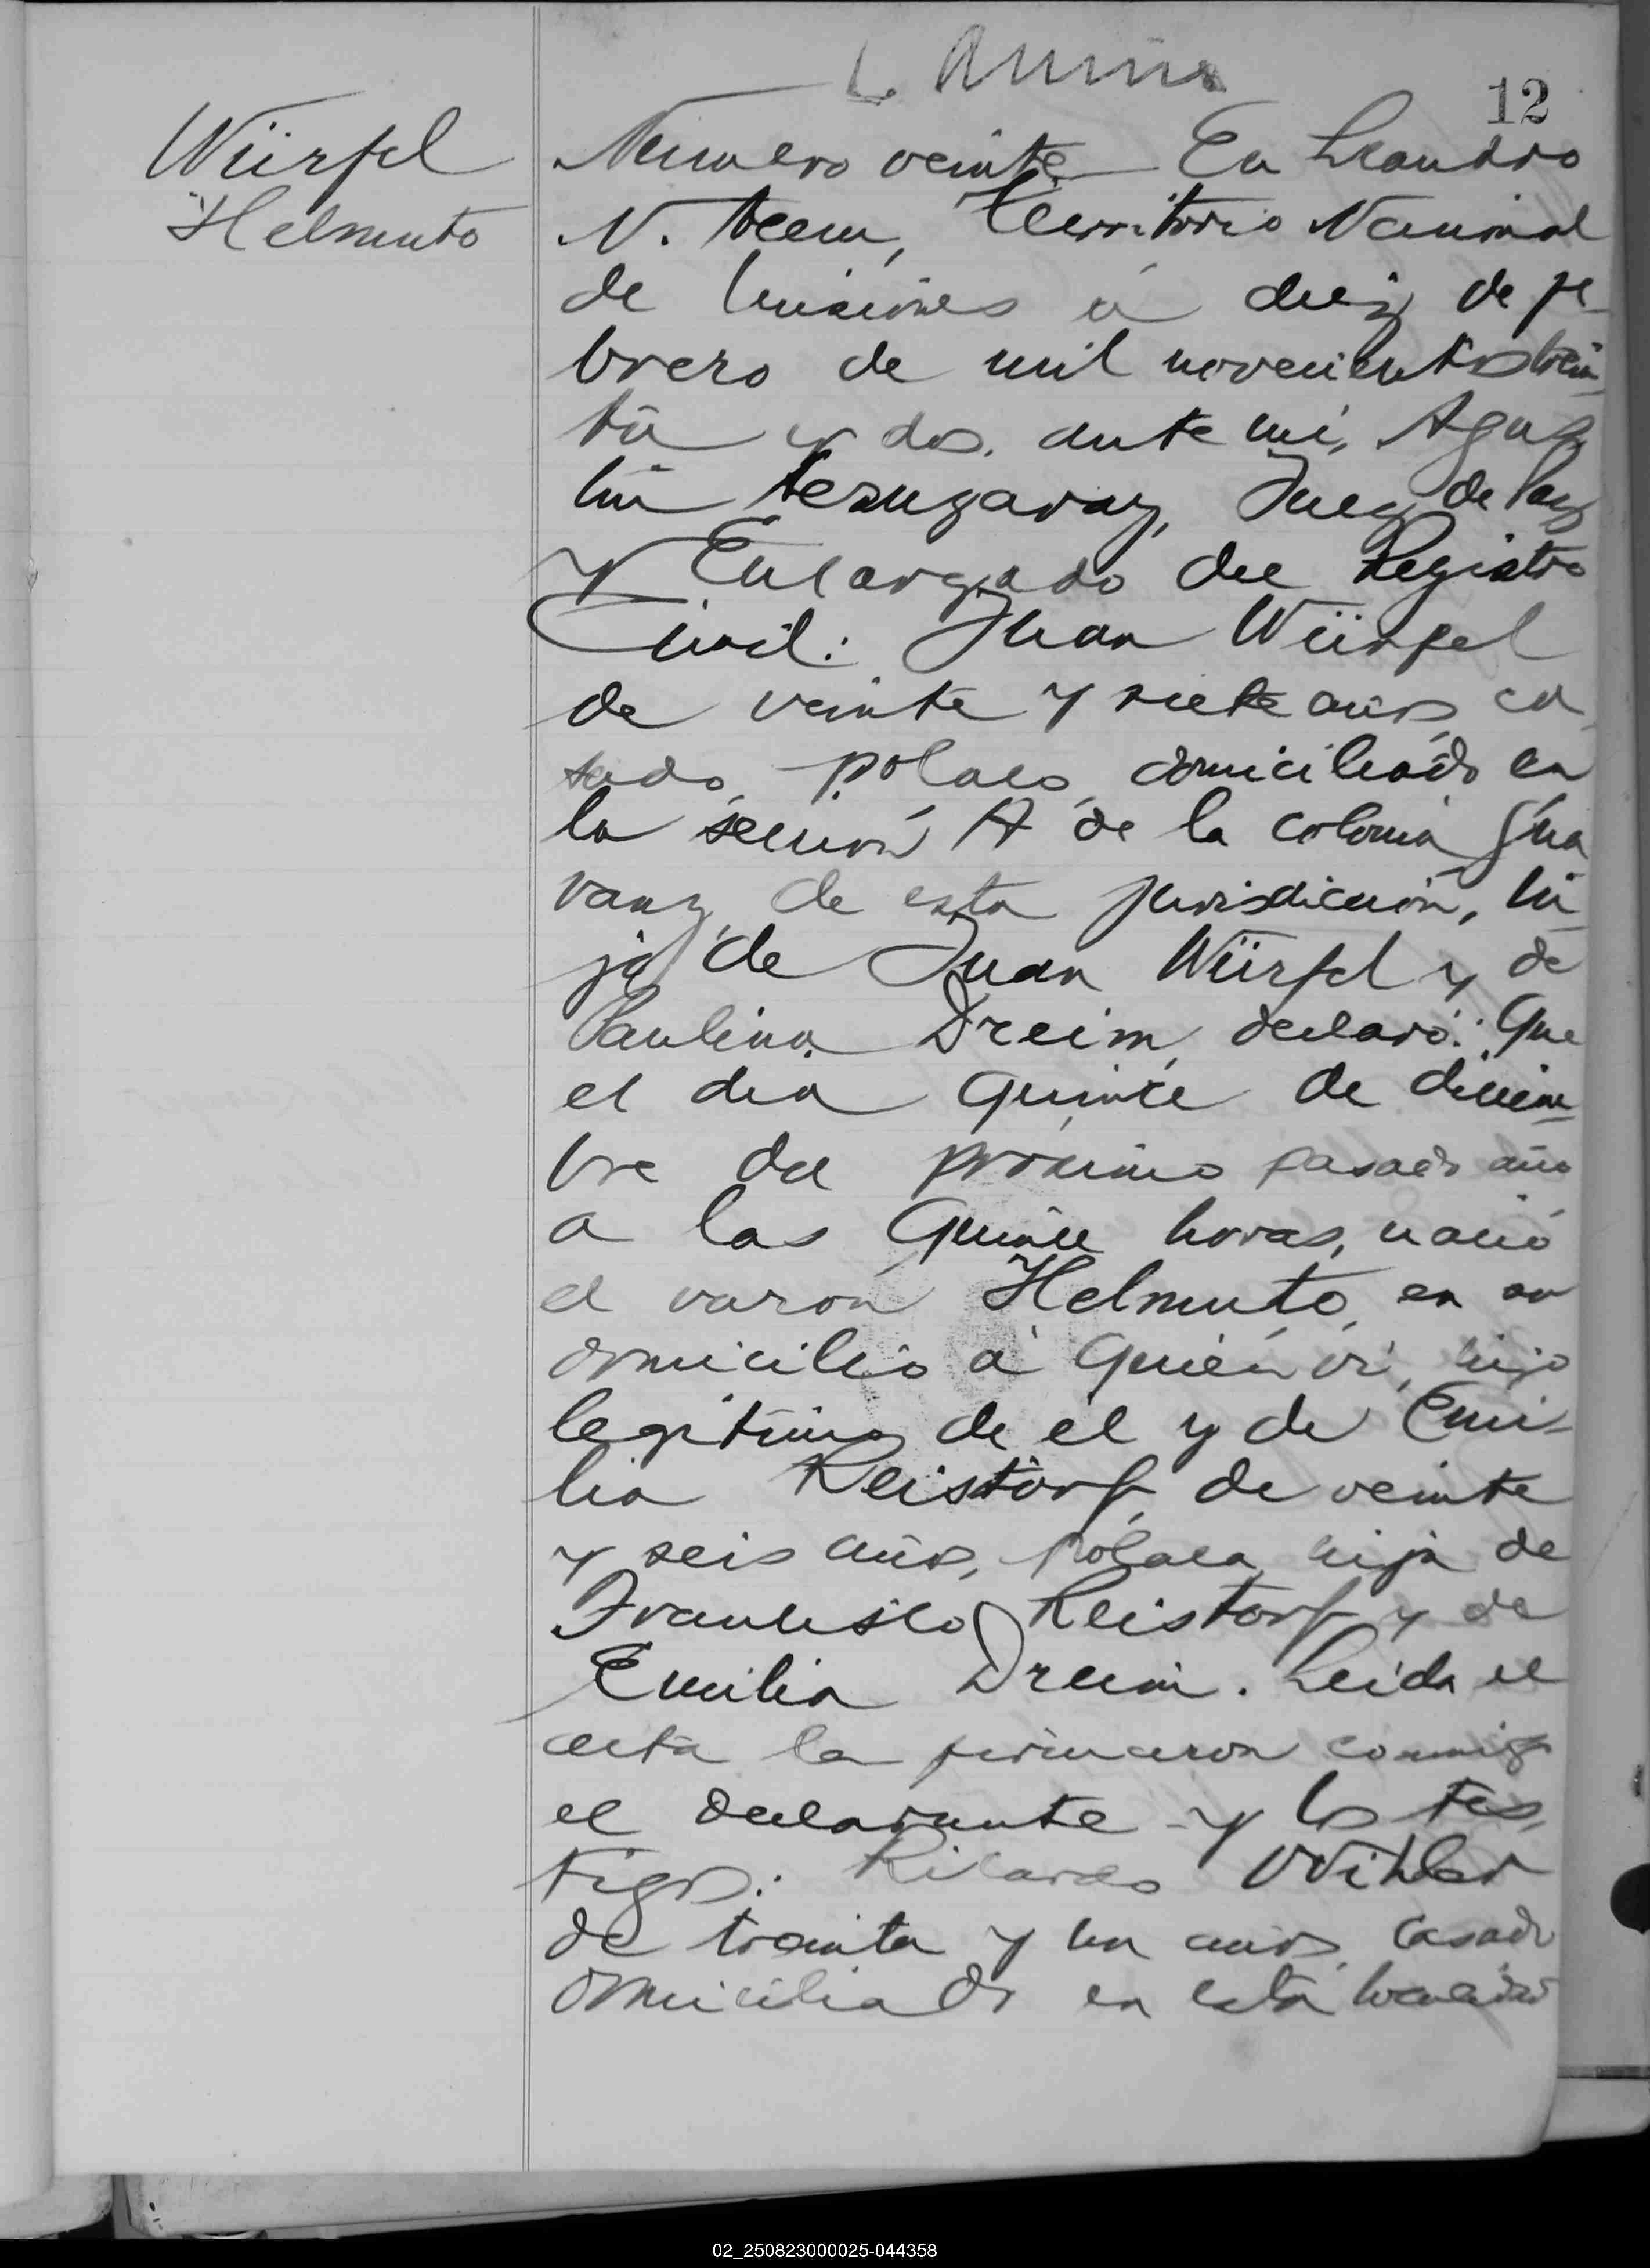 12
Würfel
Helmuto
Número veinte En Leandro
N. Alem, Territorio Nacional
de Misiones á diez de fe-
brero de mil novecientos trein-
ta y dos, ante mí, Agus-
tín Juez de Paz
y Encargado del Registro
Civil: Juan Würfel
de veinte y siete años, ca-
sado, polaco, domiciliado en
la sección A de la colonia Gua-
rany de esta jurisdicción, hi-
jo de Juan Würfel y de
Paulina Dreim, declaró: Que
el dia quince de diciem-
bre del próximo pasado año
a las quince horas, nació
el varon Helmuto, en su
domicilio á quién ví, hijo
legítimo de él y de Emi-
lia Kleistorf, de veinte
y seis años, polaca, hija de
Francisco Kleistorf y de
Emilia Dreim. Leida el
acta la firmaron conmigo
el declarante y los tes-
tigos: Ricardo
de treinta y un años, casado
domiciliado en esta localidad
02_250823000025-044358